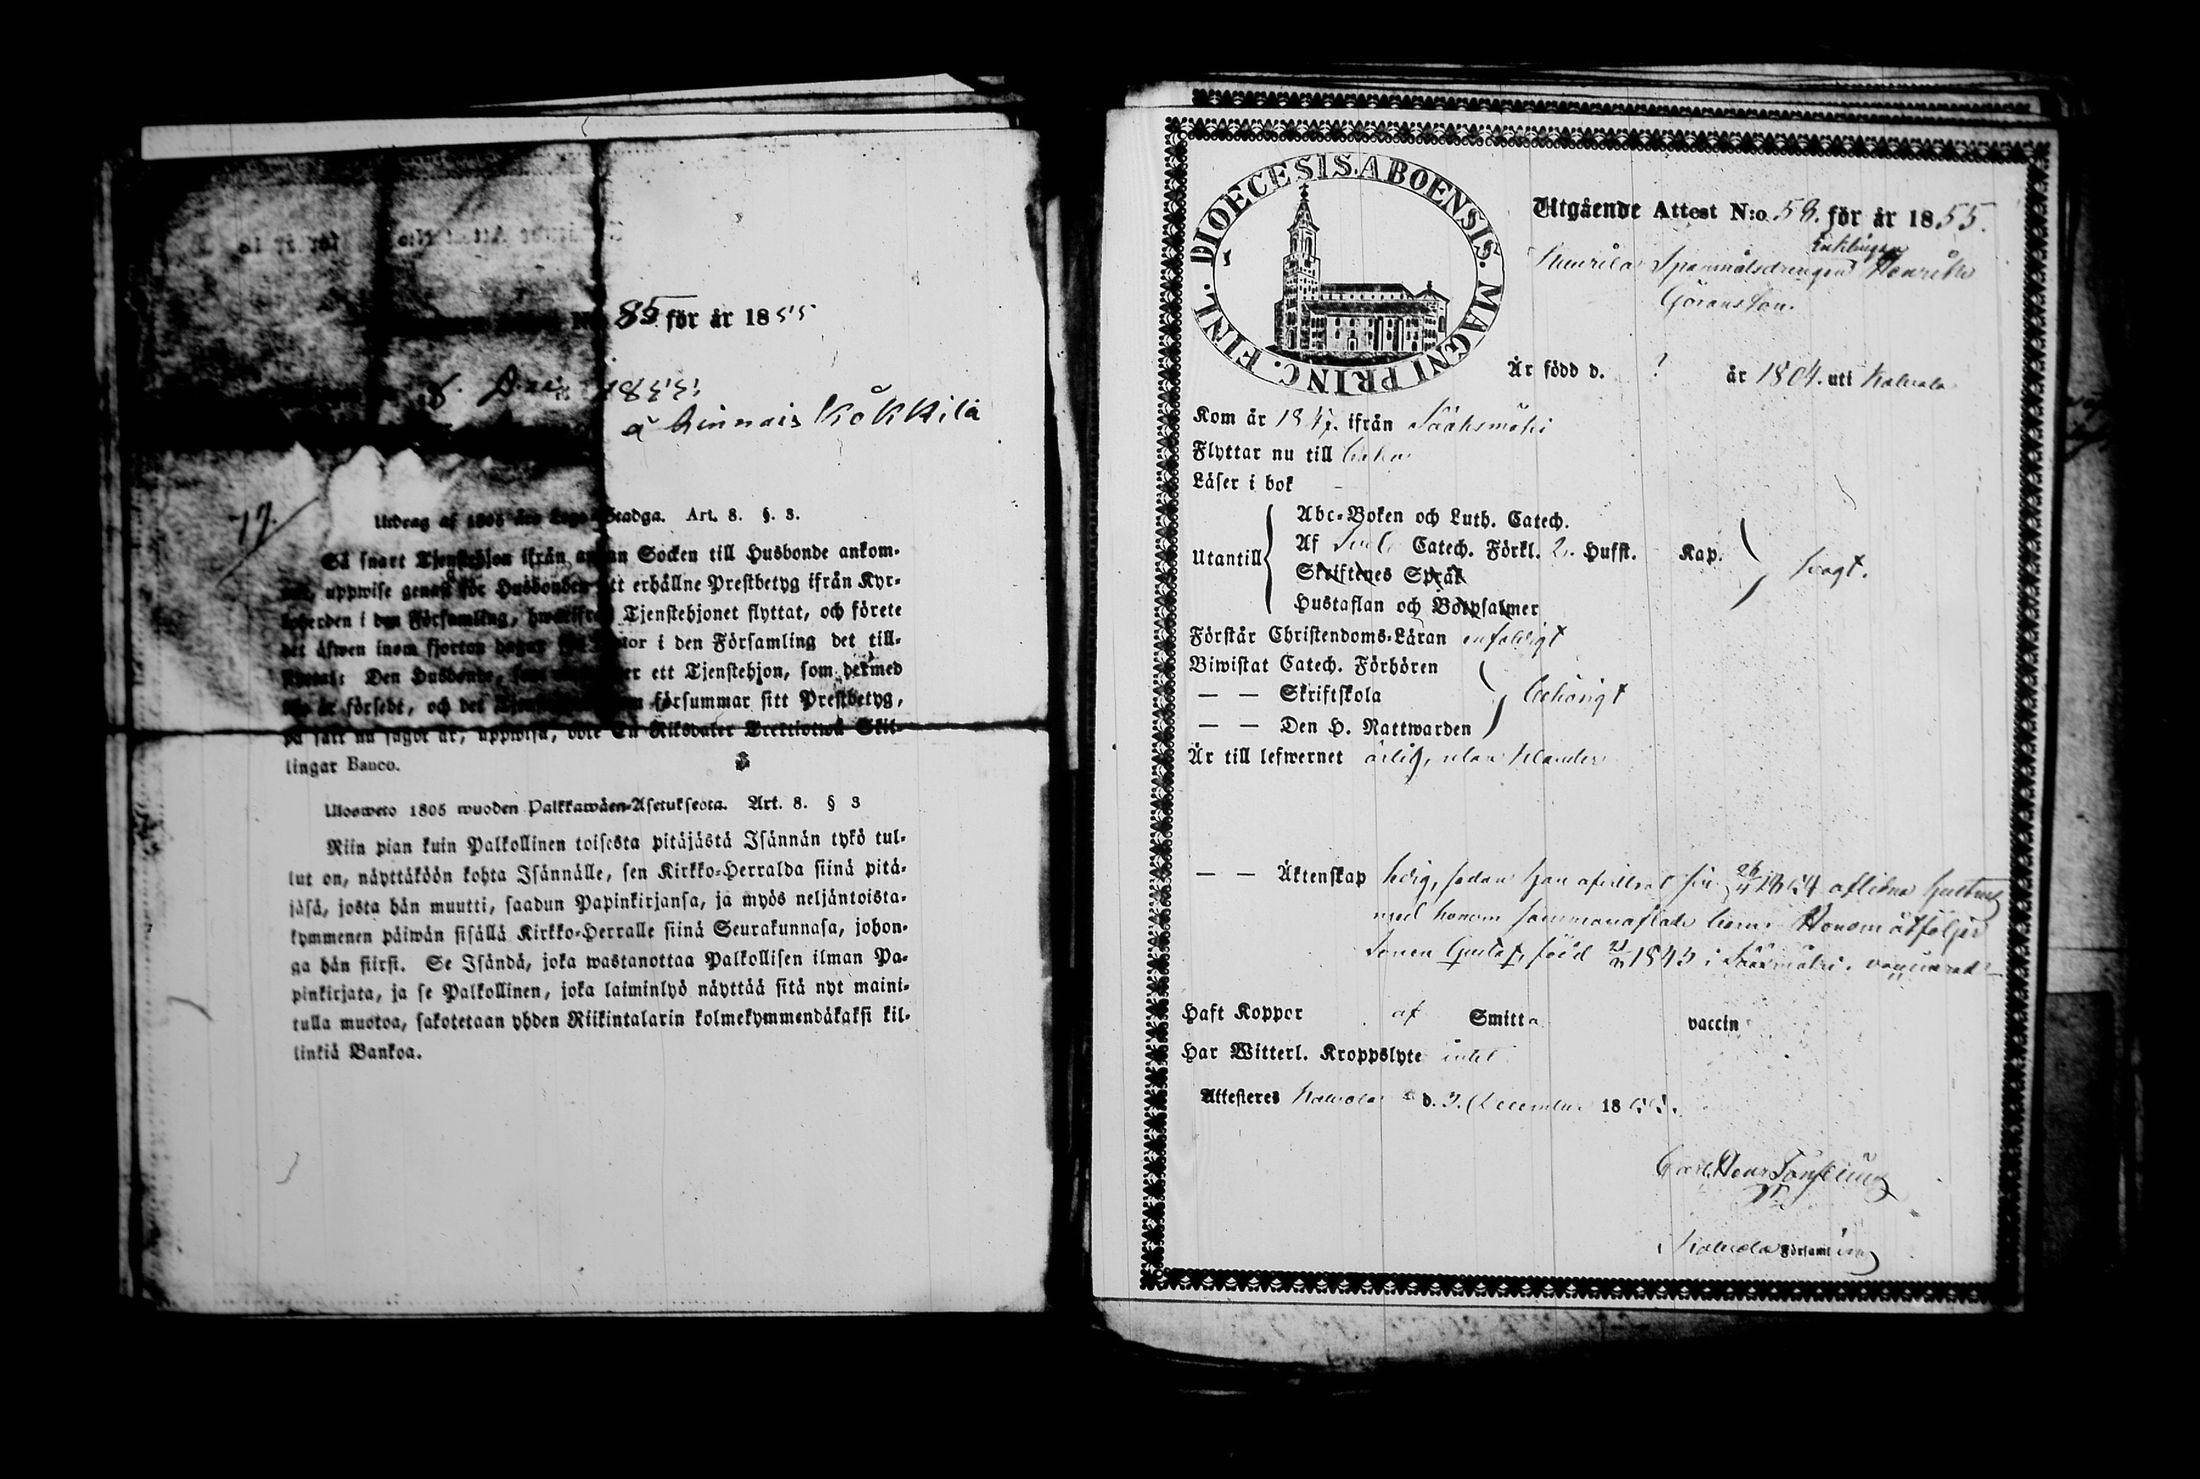 85 för år 1855
8. Dec. 1855
å Kinnais Kökkilä
77.
Utdrag af 1805 års Lego-Stadga. Art. 8. §. 3.
Så snart Tjenstehjon ifrån annan Socken till Husbonde ankom-
uppwise genast för Husbonden ett erhållne Prestbetyg ifrån Kyr-
koherden i den Församling, hwarifrån Tjenstehjonet flyttat, och förete
det äfwen inom fjorton dagar i den Församling det till-
Den Husbonde, er ett Tjenstehjon, som dermed
är försedt, och det försummar sitt Prestbetyg,
på sätt nu sagot är, uppwisa, böte En Riksdaler Trettiotwå Skil-
lingar Banco.
Uloswето 1805 wuoden Palkkawäen-Asetuksesta. Art. 8. § 3
Niin pian kuin Palkollinen toisesta pitäjästä Isännän tykö tul-
lut on, näyttäköön kohta Isännälle, sen Kirkko-Herralda siinä pitä-
jäsä, josta hän muutti, saadun Papinkirjansa, ja myös neljäntoista-
kymmenen päiwän sisällä Kirkko-Herralle siinä Seurakunnasa, johon-
ga hän siirsi. Se Isändä, joka wastanottaa Palkollisen ilman Pa-
pinkirjata, ja se Palkollinen, joka laiminlyö näyttää sitä nyt maini-
tulla muotoa, sakotetaan yhden Riikintalarin kolmekymmendäkaksi kil-
linkiä Bankoa.
DIOECESIS. ABOENSIS. MAGNI PRINC. FINL.
Utgående Attest N:o 58. för år 1855.
Enklingen
Spanmålsdrengen Henrik
Göransson.
Är född d. ? år 1804. uti Kalvola
Kom år 1847. ifrån Sääksmäki
Flyttar nu till
Läser i bok
Utantill
Abc-Boken och Luth. Catech.
Af Catech. Förkl. 2. Hufst. Kap.
Skriftenes Språk
Hustaflan och Botpsalmer
svagt.
Förstår Christendoms-Läran enfaldigt
Biwistat Catech. Förhören
— — Skriftskola
— — Den H. Nattwarden
behörigt
Är till lefwernet ärlig, utan klander
— — Äktenskap ledig, sedan han afvittrat sin 26/4 1854 aflidna hustrus
med honom sammanaflade barn. Honom åtföljer
Sonen Gustaf, född 1843 i Sääxmäki. vaccinerad
Haft Koppor af Smitta vaccin
Har Witterl. Kroppslyte intet
Attesteres Kalvola d. 3. December 1855.
Carl Henr
Kalvola Församling